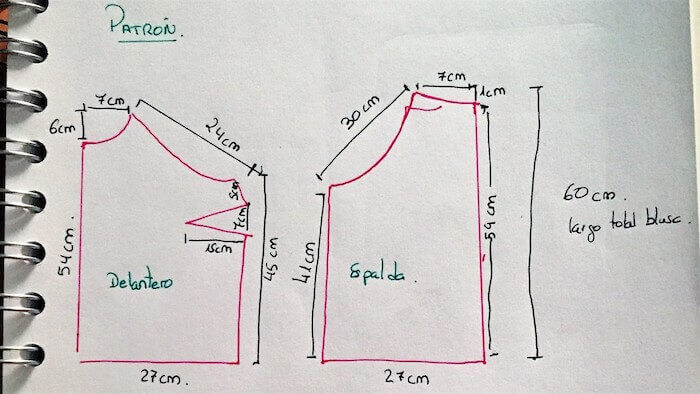 PATRÓN.
7cm
6cm
24cm
5cm
7cm
15cm
54cm.
45 cm
Delantero
27cm.
7cm
1cm
30cm
59cm
41cm
Espalda.
27cm
60cm.
largo total blusa.